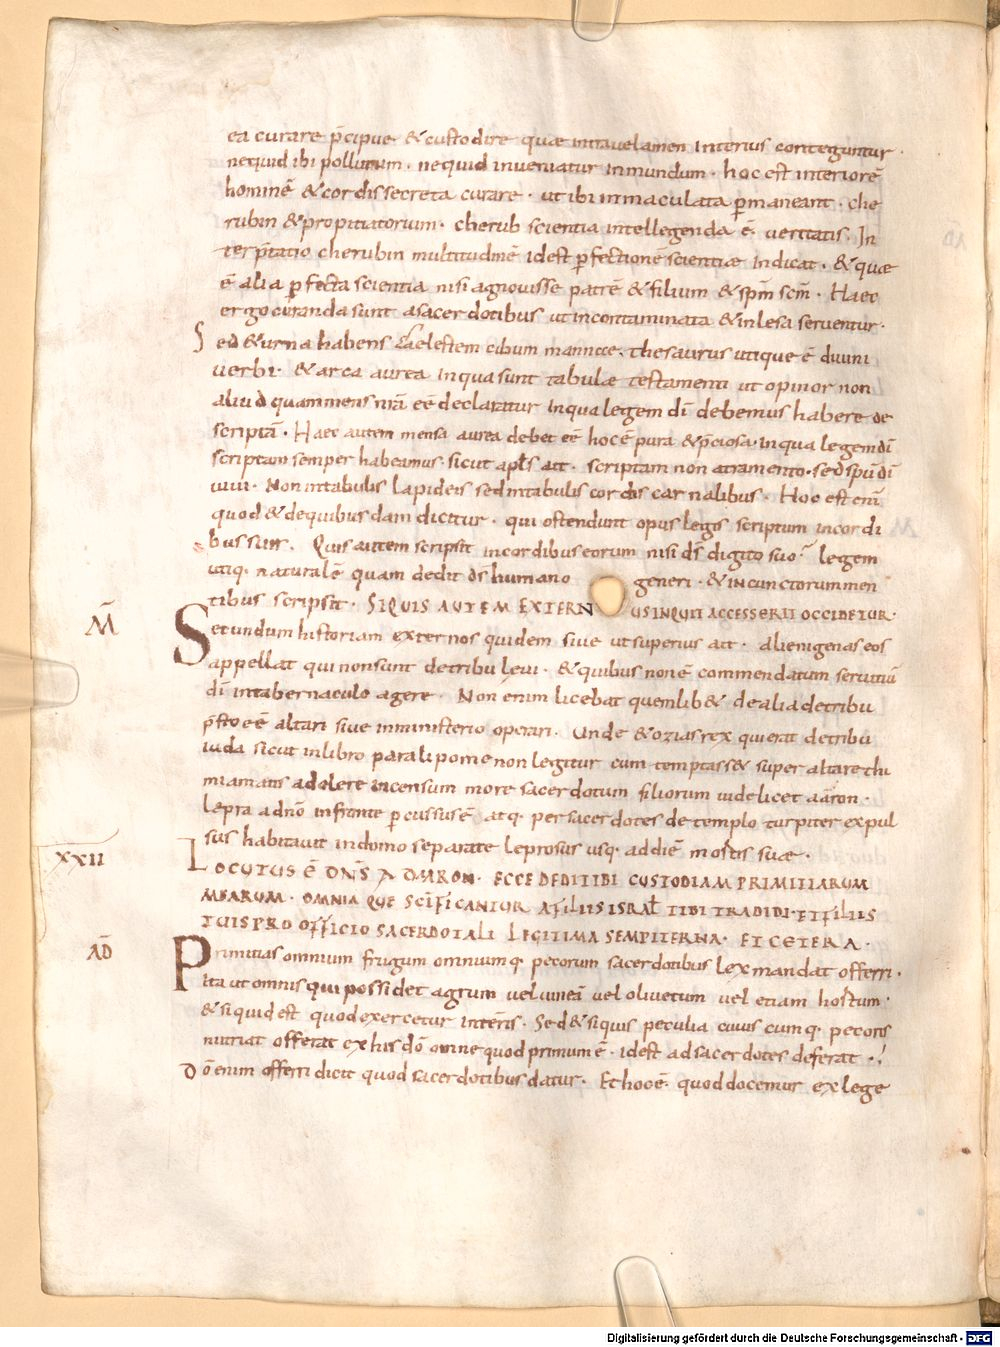 ea curare p̄cipue & custodire quae intra velamen interius conteguntur ·
nequid ibi pollutum · nequid inveniatur inmundum · hoc est interiorē
hominē & cordis secreta curare · ut ibi inmaculata ꝑmaneant · che
rubin & propitiatorium · cherub scientia intellegenda ē veritatis · In
terp̄tatio cherubin multitudinē idest ꝑfectionē scientiae indicat · & quae
ē alia ꝑfecta scientia nisi agnovisse patrē & filium & sp̄m sc̄m · Haec
ergo curanda sunt a sacerdotibus ut incontaminata & inlesa serventur ·
Sed & urna habens caelestem cibum mannae · thesaurus utique ē divini
verbi · & arca aurea in qua sunt tabulae testamenti ut opinor non
aliud quam mens nr̄a eē declaratur in qua legem dī debemus habere de
scriptā · Haec autem mensa aurea debet eē hoc ē pura & p̄ciosa · in qua legem dī
scriptam semper habeamus · sicut apl̄s ait · scriptam non atramento · sed sp̄u dī
vivi · Non in tabulis lapideis sed in tabulis cordis carnalibus · Hoc est enī
quod & de quibusdam dicitur · qui ostendunt opus legis scriptum in cordi
bus suis · Quis autem scripsit in cordibus eorum nisi ds̄ digito suo · legem
utiq· naturalē quam dedit ds̄ humano generi · & in cunctorum men
tibus scripsit · SIQUIS AUTEM EXTERNUS INQUIT ACCESSERIT OCCIDETUR ·
M̄
Secundum historiam externos quidem sive ut superius ait · alienigenas eos
appellat qui non sunt de tribu levi · & quibus non ē commendatum servitiū
dī in tabernaculo agere · Non enim licebat quemlib& de alia de tribu
p̄sto eē altari sive in ministerio operari · Unde & ozias rex qui erat de tribu
iuda sicut in libro paralipomenon legitur cum temptass& super altare thi
miamatis adolere incensum more sacerdotum filiorum videlicet aaron ·
lepra a dn̄o in fronte ꝑcussus ē atq· per sacerdotes de templo turpiter expul
sus habitavit in domo separate leprosus usq· ad diē mortis suae ·
XXII
LOCUTUS Ē DN̄S AD AARON · ECCE DEDI TIBI CUSTODIAM PRIMITIARUM
MEARUM · OMNIA QUE SC̄IFICANTUR A FILIIS ISRAL̄ TIBI TRADIDI · ET FILIIS
TUIS PRO OFFICIO SACERDOTALI LEGITIMA SEMPITERNA · ET CETERA ·
AD̄
Primitias omnium frugum omniumq· pecorum sacerdotibus lex mandat offerri ·
Ita ut omnis qui possidet agrum vel vineā vel olivetum vel etiam hortum ·
& siquid est quod exercetur in terris · Sed & siquis peculia cuiuscumq· pecoris
nutriat offerat ex his dō omne quod primum ē · idest ad sacerdotes deferat ·
Dō enim offerri dicit quod sacerdotibus datur · Et hoc ē quod docemur ex lege
Digitalisierung gefördert durch die Deutsche Forschungsgemeinschaft - DFG